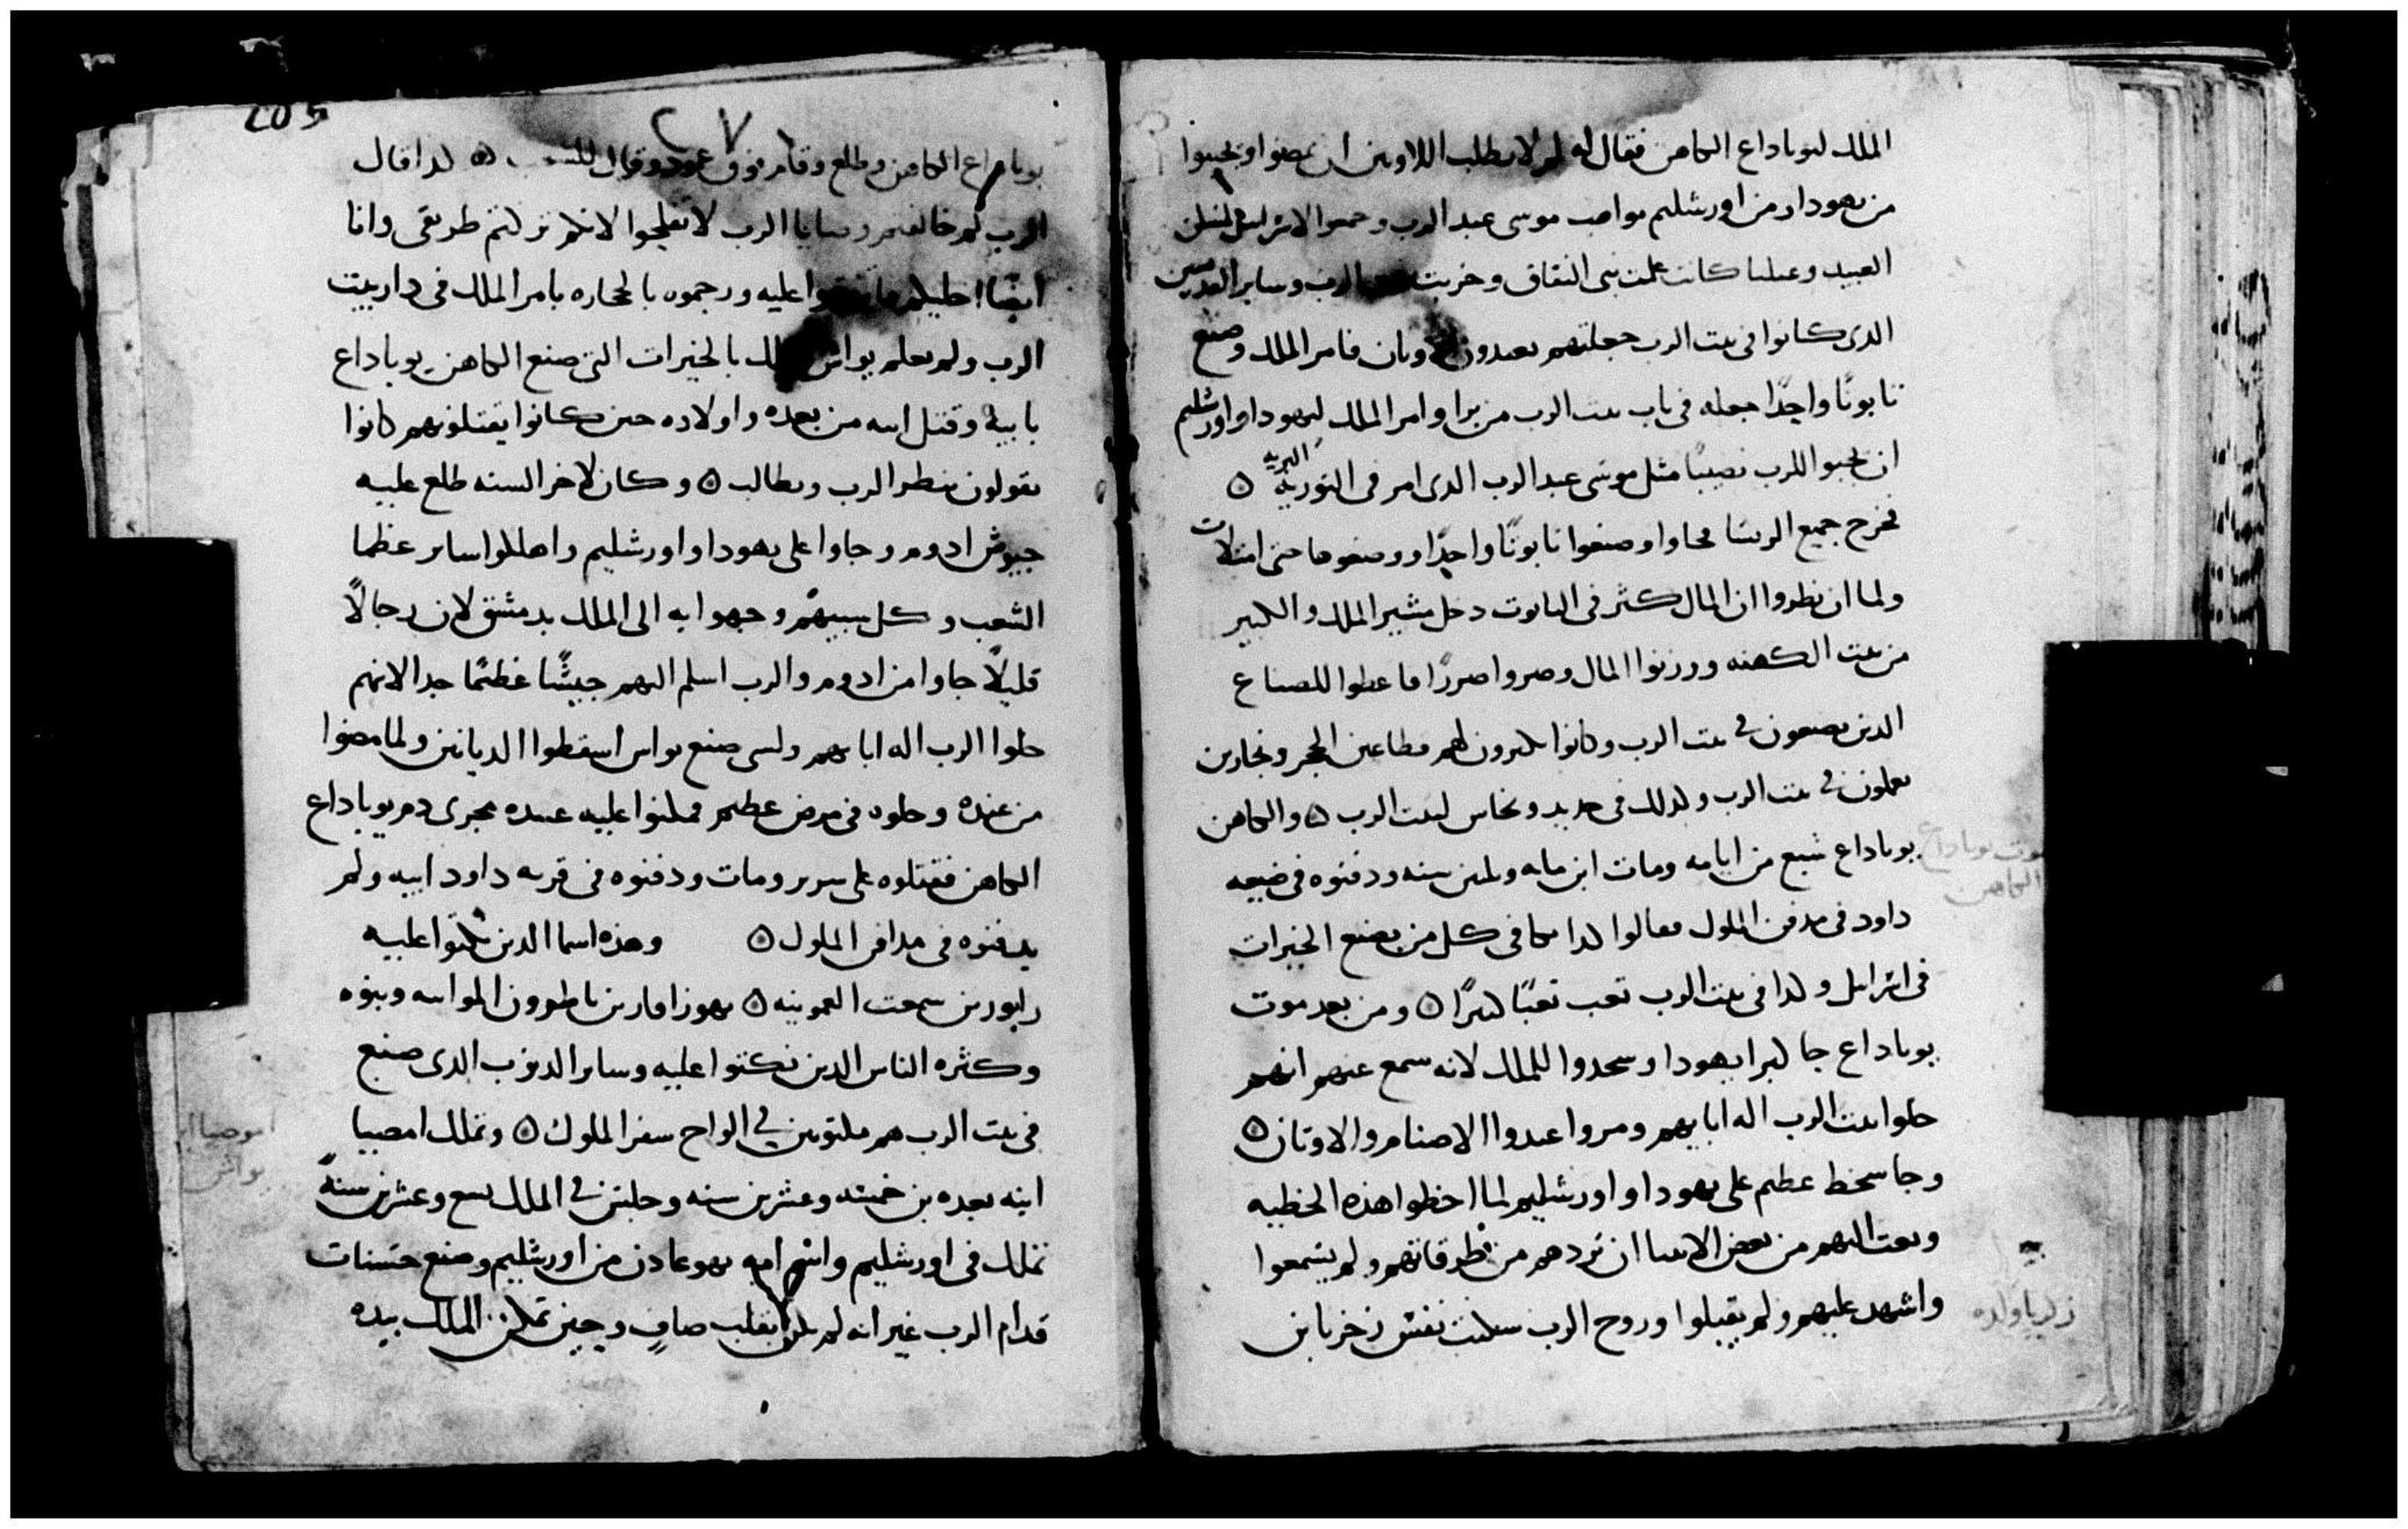 الملك ليوياداع الكاهن فقال له لم لا تطلب اللاويين ان يمضوا ويجيبوا
من يهودا ومن اورشليم مواهب موسى عبد الرب وجمعوا الاسراييل
العبيد وعتليا كانت علمت بني النفاق وخربت الرب وساير القدسين
الدى كانوا فى بيت الرب جعلتهم يعبدون فامر الملك وصنع
تابوتًا واحدًا جعله فى باب بيت الرب من برا وامر الملك ليهودا واورشليم
ان يجيبوا للرب نصيبًا مثل موسى عبد الرب الدى امر فى التوريه البريه ه
فخرج جميع الريسا فجاوا وصنعوا تابوتًا واحدًا ووضعوها حتى امتلات
ولما ان نظروا ان المال كثر فى التابوت دخل مشير الملك والكبير
من بيت الكهنه ووزنوا المال وصروا صررًا فاعطوا للصناع
الدين يصنعون في بيت الرب وكانوا يكرون لهم قطاعين الحجر ونجارين
يعملون في بيت الرب وكدلك فى حديد ونحاس لبيت الرب ه والكاهن
يوياداع شبع من ايامه ومات ابن مايه وثلثين سنه ودفنوه فى ضيعه
داود فى مدفن الملوك فقالوا كدا يكافى كل من يصنع الخيرات
فى اسراييل وكدا فى بيت الرب تعب تعبًا كبيرًا ه ومن بعد موت
يوياداع جا كبرا يهودا وسجدوا للملك لانه سمع عنهم انهم
خلوا بيت الرب اله ابايهم ومروا عبدوا الاصنام والاوتان ه
وجا سخط عظيم على يهودا واورشليم لما اخطوا هده الخطيه
وبعت اليهم من بعض الانبيا ان تردهم من طرقاتهم ولم يسمعوا
واشهد عليهم ولم يقبلوا وروح الرب سكنت نفس زخريا بن
موت يوياداع
الكاهن
زكريا ولده
205
٢٧
يوياداع الكاهن وطلع وقام فوق عود وقال ه كدا قال
الرب لم خالفتم وصايا الرب لا تفلحوا لانكم تركتم طريقى وانا
ايضًا اخليكم عليه ورجموه بالحجاره بامر الملك فى دار بيت
الرب ولم يعلم يواش بالخيرات التى صنع الكاهن يوياداع
بابيه وقتل ابنه من بعده واولاده حين كانوا يقتلونهم كانوا
يقولون ينظر الرب ويطالب ه وكان لاخر السنه طلع عليه
جيوش ادوم وجاوا على يهودا واورشليم واهلكوا ساير عظما
الشعب وكل سبيهم وجهوا به الى الملك بدمشق لان رجالًا
قليلًا جاوا من ادوم والرب اسلم اليهم جيشًا عظيمًا جدا لانهم
خلوا الرب اله ابايهم ولسى صنع يواس اسقطوا الديانين ولما مضوا
من عنده وخلوه فى مرض عظيم فمكنوا عليه عبيده مجرى دم يوياداع
الكاهن فقتلوه على سرير ومات ودفنوه فى قريه داود ابيه ولم
يدفنوه فى مدافن الملوك ه وهده اسما الدين نكتوا عليه
زابور بن سمعت العمونيه ه يهوزافار بن ناطورون الموابيه وبنوه
وكثره الناس الدين نكتوا عليه وساير الدنوب الدى صنع
فى بيت الرب هم مكتوبين في الواح سفر الملوك ه وتملك امصيا
ابنه بعده بن خمسه وعشرين سنه وجلس في الملك تسع وعشرين سنهً
تملك فى اورشليم واسم امه يهوعادن من اورشليم وصنع حسنات
قدام الرب غير انه لم يكن بقلب صافٍ وحين تمكن الملك بيده
اموصيا ابن
يواش